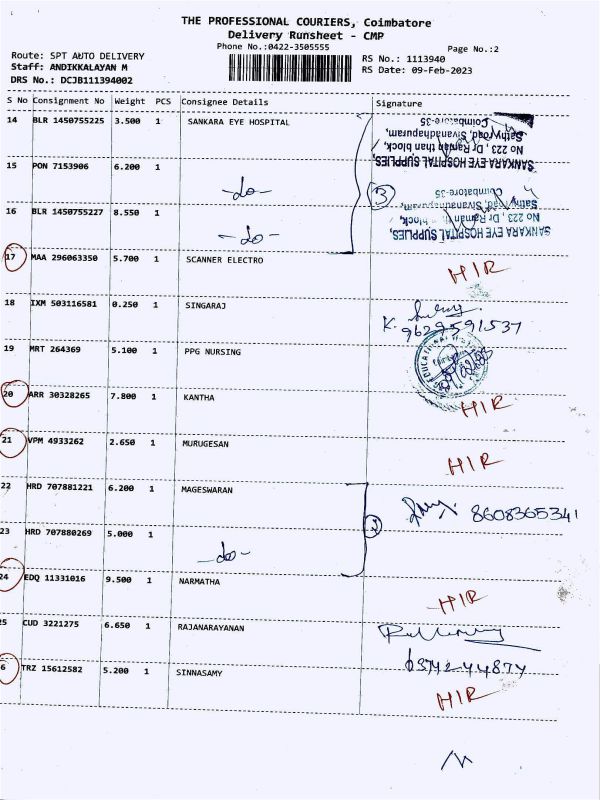 THE PROFESSIONAL COURIERS, Coimbatore
Delivery Runsheet - CMP
Phone No.:0422-3505555
Page No.:2
Route: SPT AUTO DELIVERY
Staff: ANDIKKALAYAN M
DRS No.: DCJB111394002
RS No.: 1113940
RS Date: 09-Feb-2023
S No Consignment No Weight PCS Consignee Details Signature
14 BLR 1450755225 3.500 1 SANKARA EYE HOSPITAL
SANKARA EYE HOSPITAL SUPPLIES,
No 223, Dr Raman block,
Sathy road, Sivanandhapuram,
Coimbatore-35
15 PON 7153906 6.200 1 -do-
3
16 BLR 1450755227 8.550 1 -do-
SANKARA EYE HOSPITAL SUPPLIES,
No 223, Dr Raman block,
Sathy road, Sivanandhapuram,
Coimbatore-35
17 MAA 296063350 5.700 1 SCANNER ELECTRO HIR
18 IXM 503116581 0.250 1 SINGARAJ K.
9629591537
19 MRT 264369 5.100 1 PPG NURSING
EDUCATIONAL
20 ARR 30328265 7.800 1 KANTHA HIR
21 VPM 4933262 2.650 1 MURUGESAN HIR
22 HRD 707881221 6.200 1 MAGESWARAN 8608365341
23 HRD 707880269 5.000 1 -do-
24 EDQ 11331016 9.500 1 NARMATHA HIR
25 CUD 3221275 6.650 1 RAJANARAYANAN
6374244874
6 TRZ 15612582 5.200 1 SINNASAMY HIR